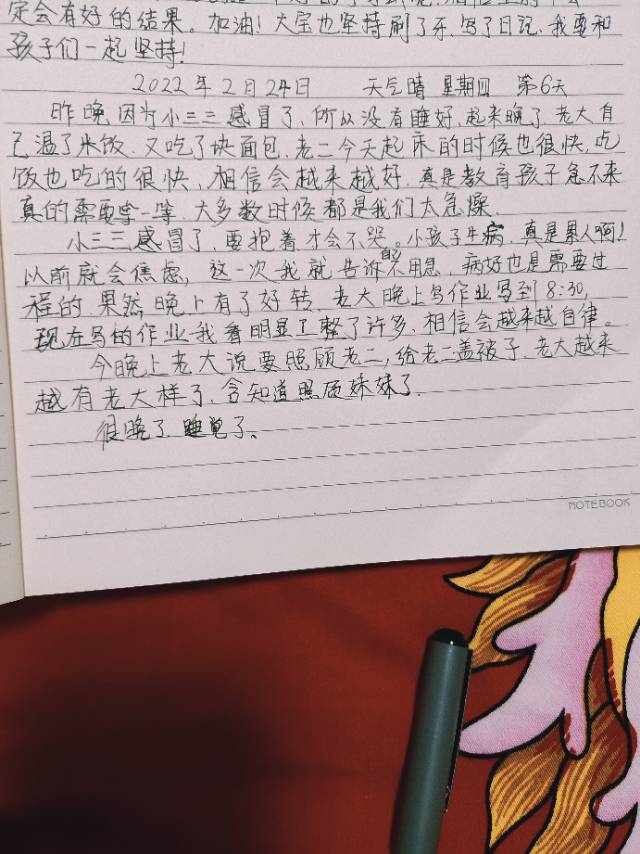 定会有好的结果。加油！大宝也坚持刷了牙、写了日记、我要和
孩子们一起坚持！
2022年2月24日 天气晴 星期四 第6天
昨晚因为小三三感冒了，所以没有睡好，起来晚了，老大自
己温了米饭，又吃了块面包，老二今天起床的时候也很快，吃
饭也吃的很快，相信会越来越好，真是教育孩子急不来
真的需要等一等，大多数时候都是我们太急燥、
小三三感冒了，要抱着才会不哭。小孩子生病，真是累人啊！
以前就会焦虑，这一次我就告诉自己不用急，病好也是需要过
程的，果然晚上有了好转，老大晚上写作业写到8:30,
现在写的作业我看明显工整了许多，相信会越来越自律。
今晚上老大说要照顾老二，给老二盖被子，老大越来
越有老大样了，会知道照顾妹妹了.
很晚了，睡觉了。
NOTEBOOK